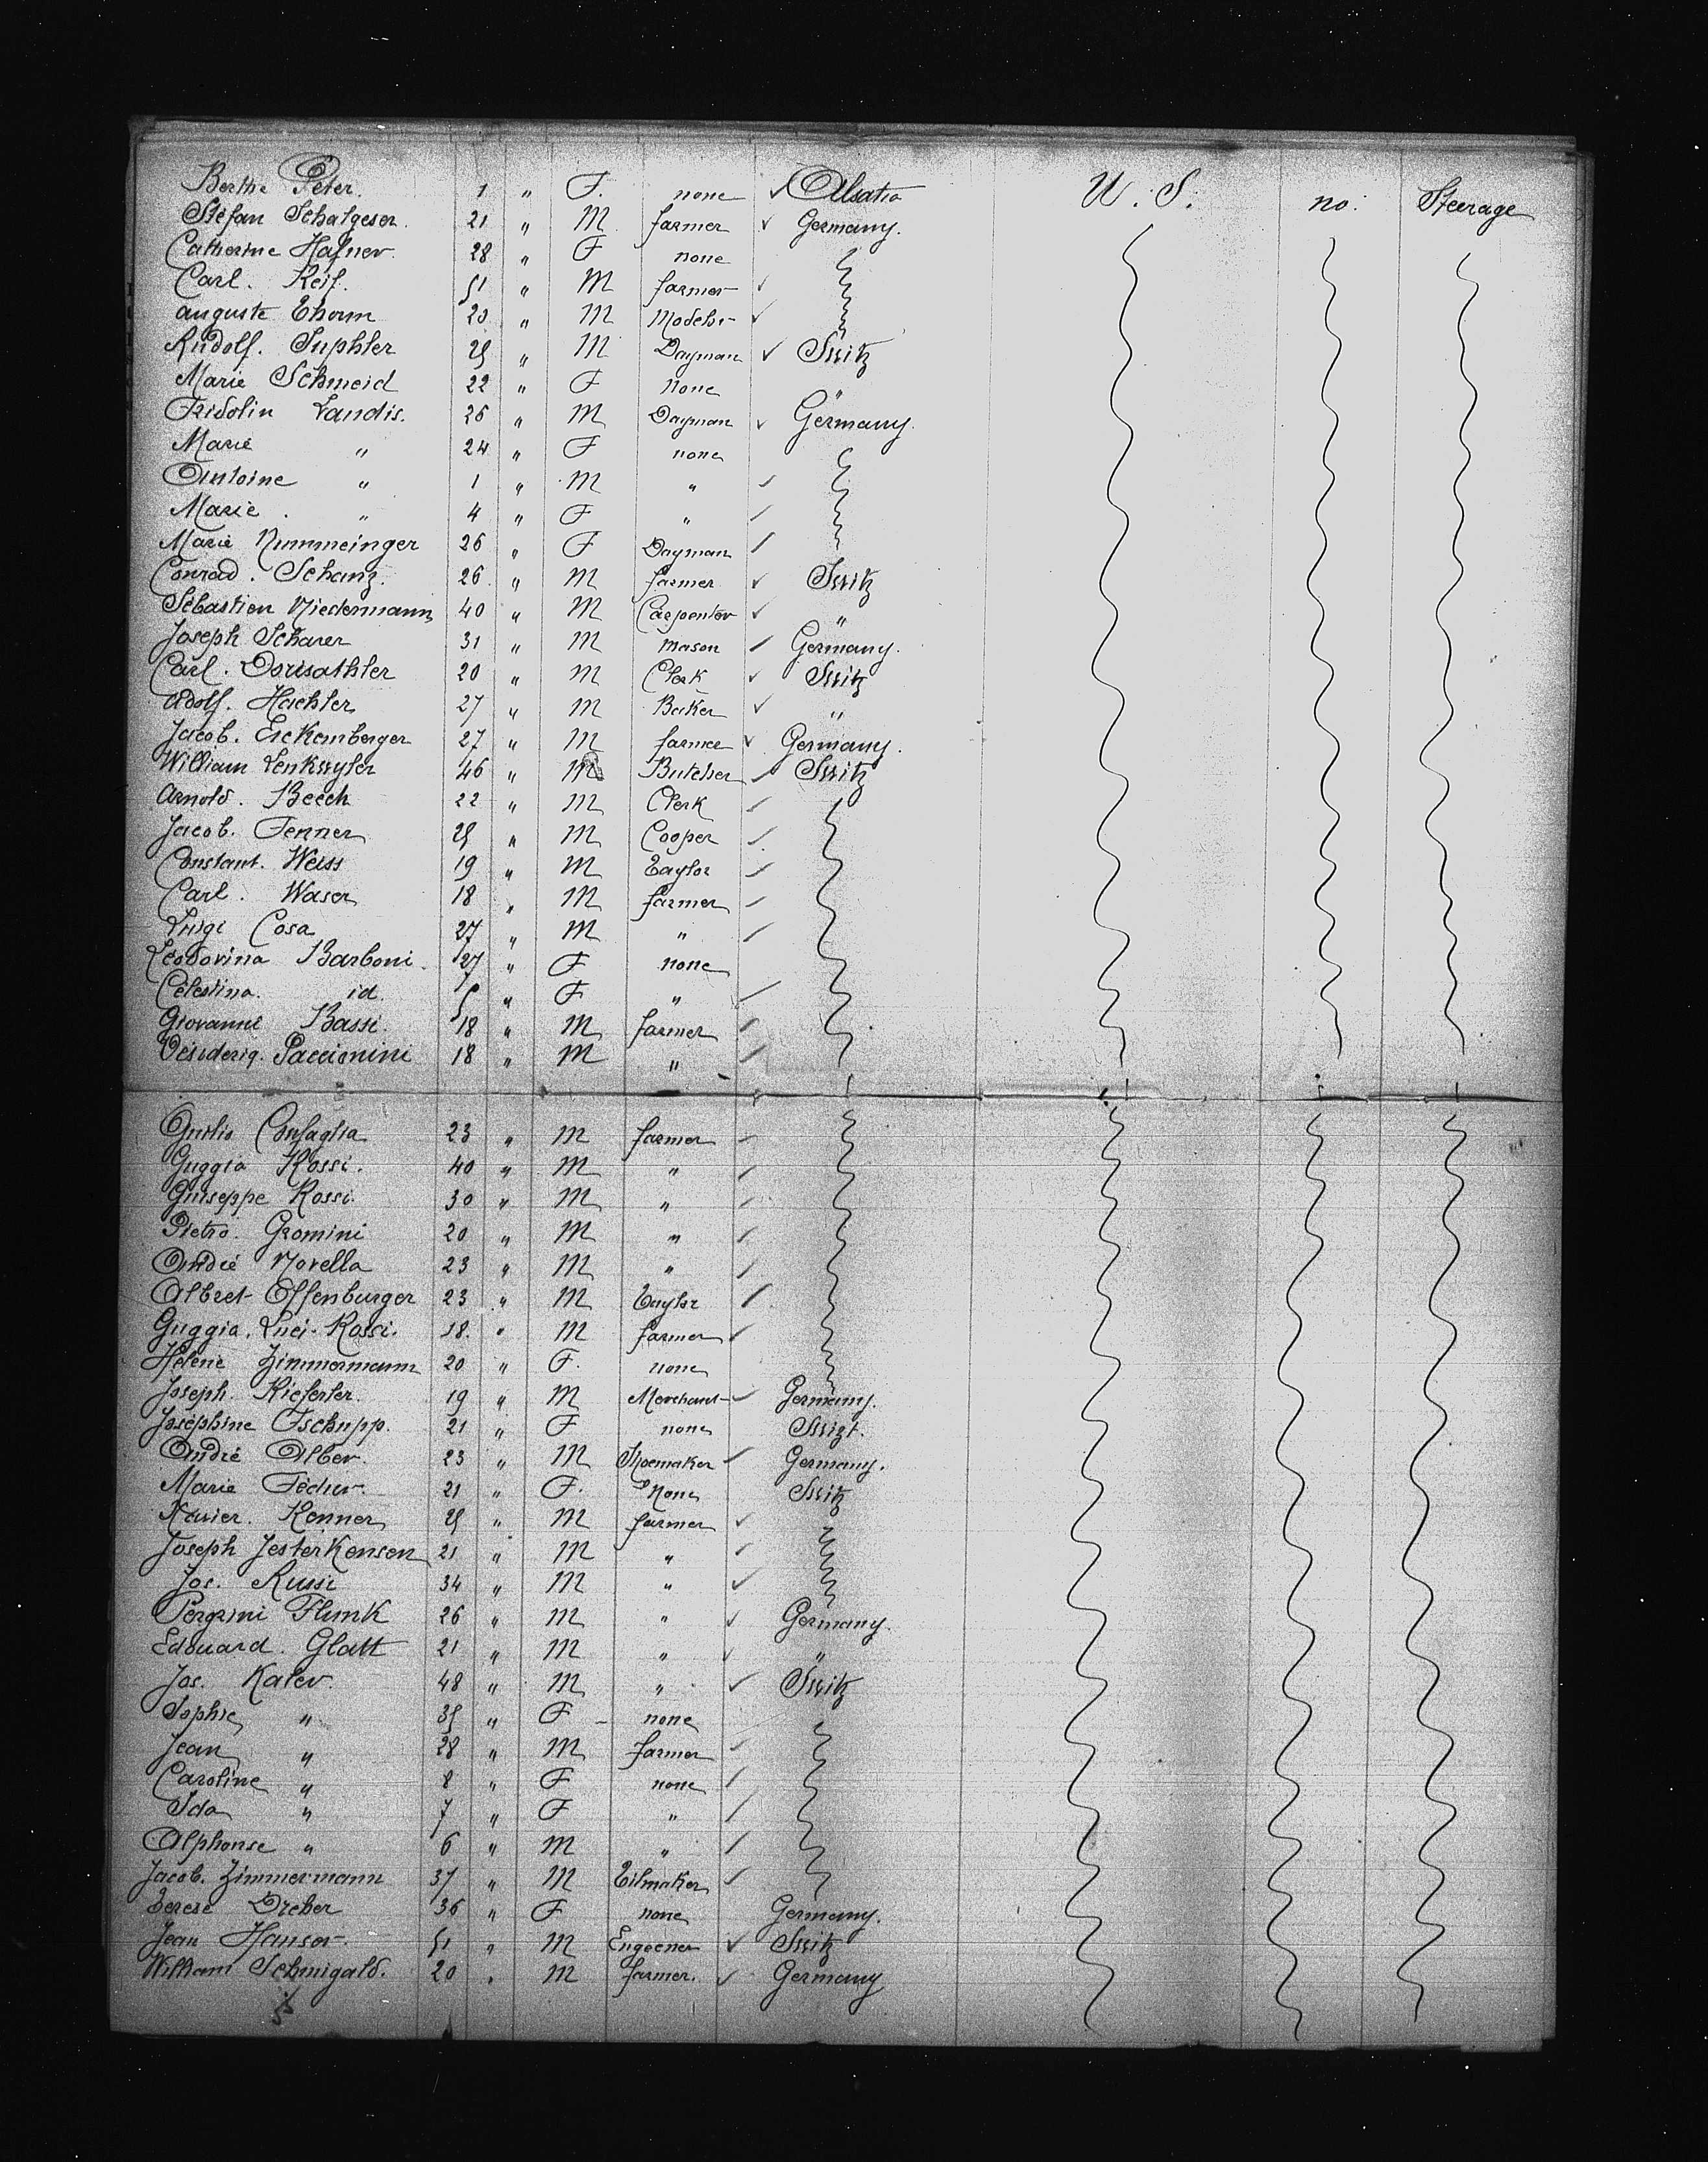 Berthe Peter 1 " F. none ✓ Alsatia U. S. no. Steerage
Stéfan Schatgeser. 21 " M farmer ✓ Germany.
Catherine Hafner. 28 " F none
Carl. Reif. 51 " M farmer ✓
Auguste Thorm 20 " M Modeler ✓
Rudolf. Suphler 25 " M Dayman ✓ Switz
Marie Schmeid 22 " F none "
Fridolin Landis. 26 " M Dayman ✓ Germany.
Marie " 24 " F none
Antoine " 1 " M "
Marie " 4 " F "
Marie Nummeinger 26 " F Dayman
Conrad. Schanz. 26 " M farmer ✓ Switz
Sébastien Niedermann 40 " M Carpenter ✓ "
Joseph Scharer 31 " M mason Germany.
Carl. 20 " M Clerk ✓ Switz
Adolf. Hachler 27 " M Baker ✓ "
Jacob. Eickemberger 27 " M farmer ✓ Germany.
William Lenkwyler 46 " M Butcher Switz
Arnold. Beech 22 " M Clerk
Jacob. Fenner 25 " M Cooper
Constant. Weiss 19 " M Taylor
Carl. Waser 18 " M farmer
Luigi Cosa 27 " M "
Leodovina Barboni 27 " F none
Célestina. id. 5 " F "
Giovanni Bassi. 18 " M farmer
Paccionini 18 " M "
Guilio Confaglia 23 " M farmer
Guggia Rossi. 40 " M "
Guiseppe Rossi. 30 " M "
Pietro. Gromini 20 " M "
André Novella 23 " M "
Albret Offenburger 23 " M Taylor
Guggia. Luci-Rossi. 18. " M farmer
Hélène Zimmermann 20 " F. none
Joseph. Kieferler. 19 " M Merchant Germany.
Joséphine Tschupp. 21 " F none Swizt.
André Alber. 23 " M Shoemaker Germany.
Marie Fédur. 21 " F. None Switz
Xavier. Renner 25 " M farmer ✓
Joseph Jesterkensen 21 " M "
Jos. Russi 34 " M " ✓
Pergrini Flunk 26 " M " ✓ Germany.
Edouard. Glatt 21 " M " ✓ "
Jos. Kaler. 48 " M " ✓ Switz
Sophie " 35 " F none
Jean " 28 " M farmer
Caroline " 8 " F none
Ida " 7 " F "
Alphonse " 6 " M "
Jacob. Zimmermann 37 " M Tilmaker
Terese Dreher 36 " F none Germany.
Jean Hauser. 51 " M Engeener ✓ Switz
William Schmigald. 20 " M farmer. ✓ Germany